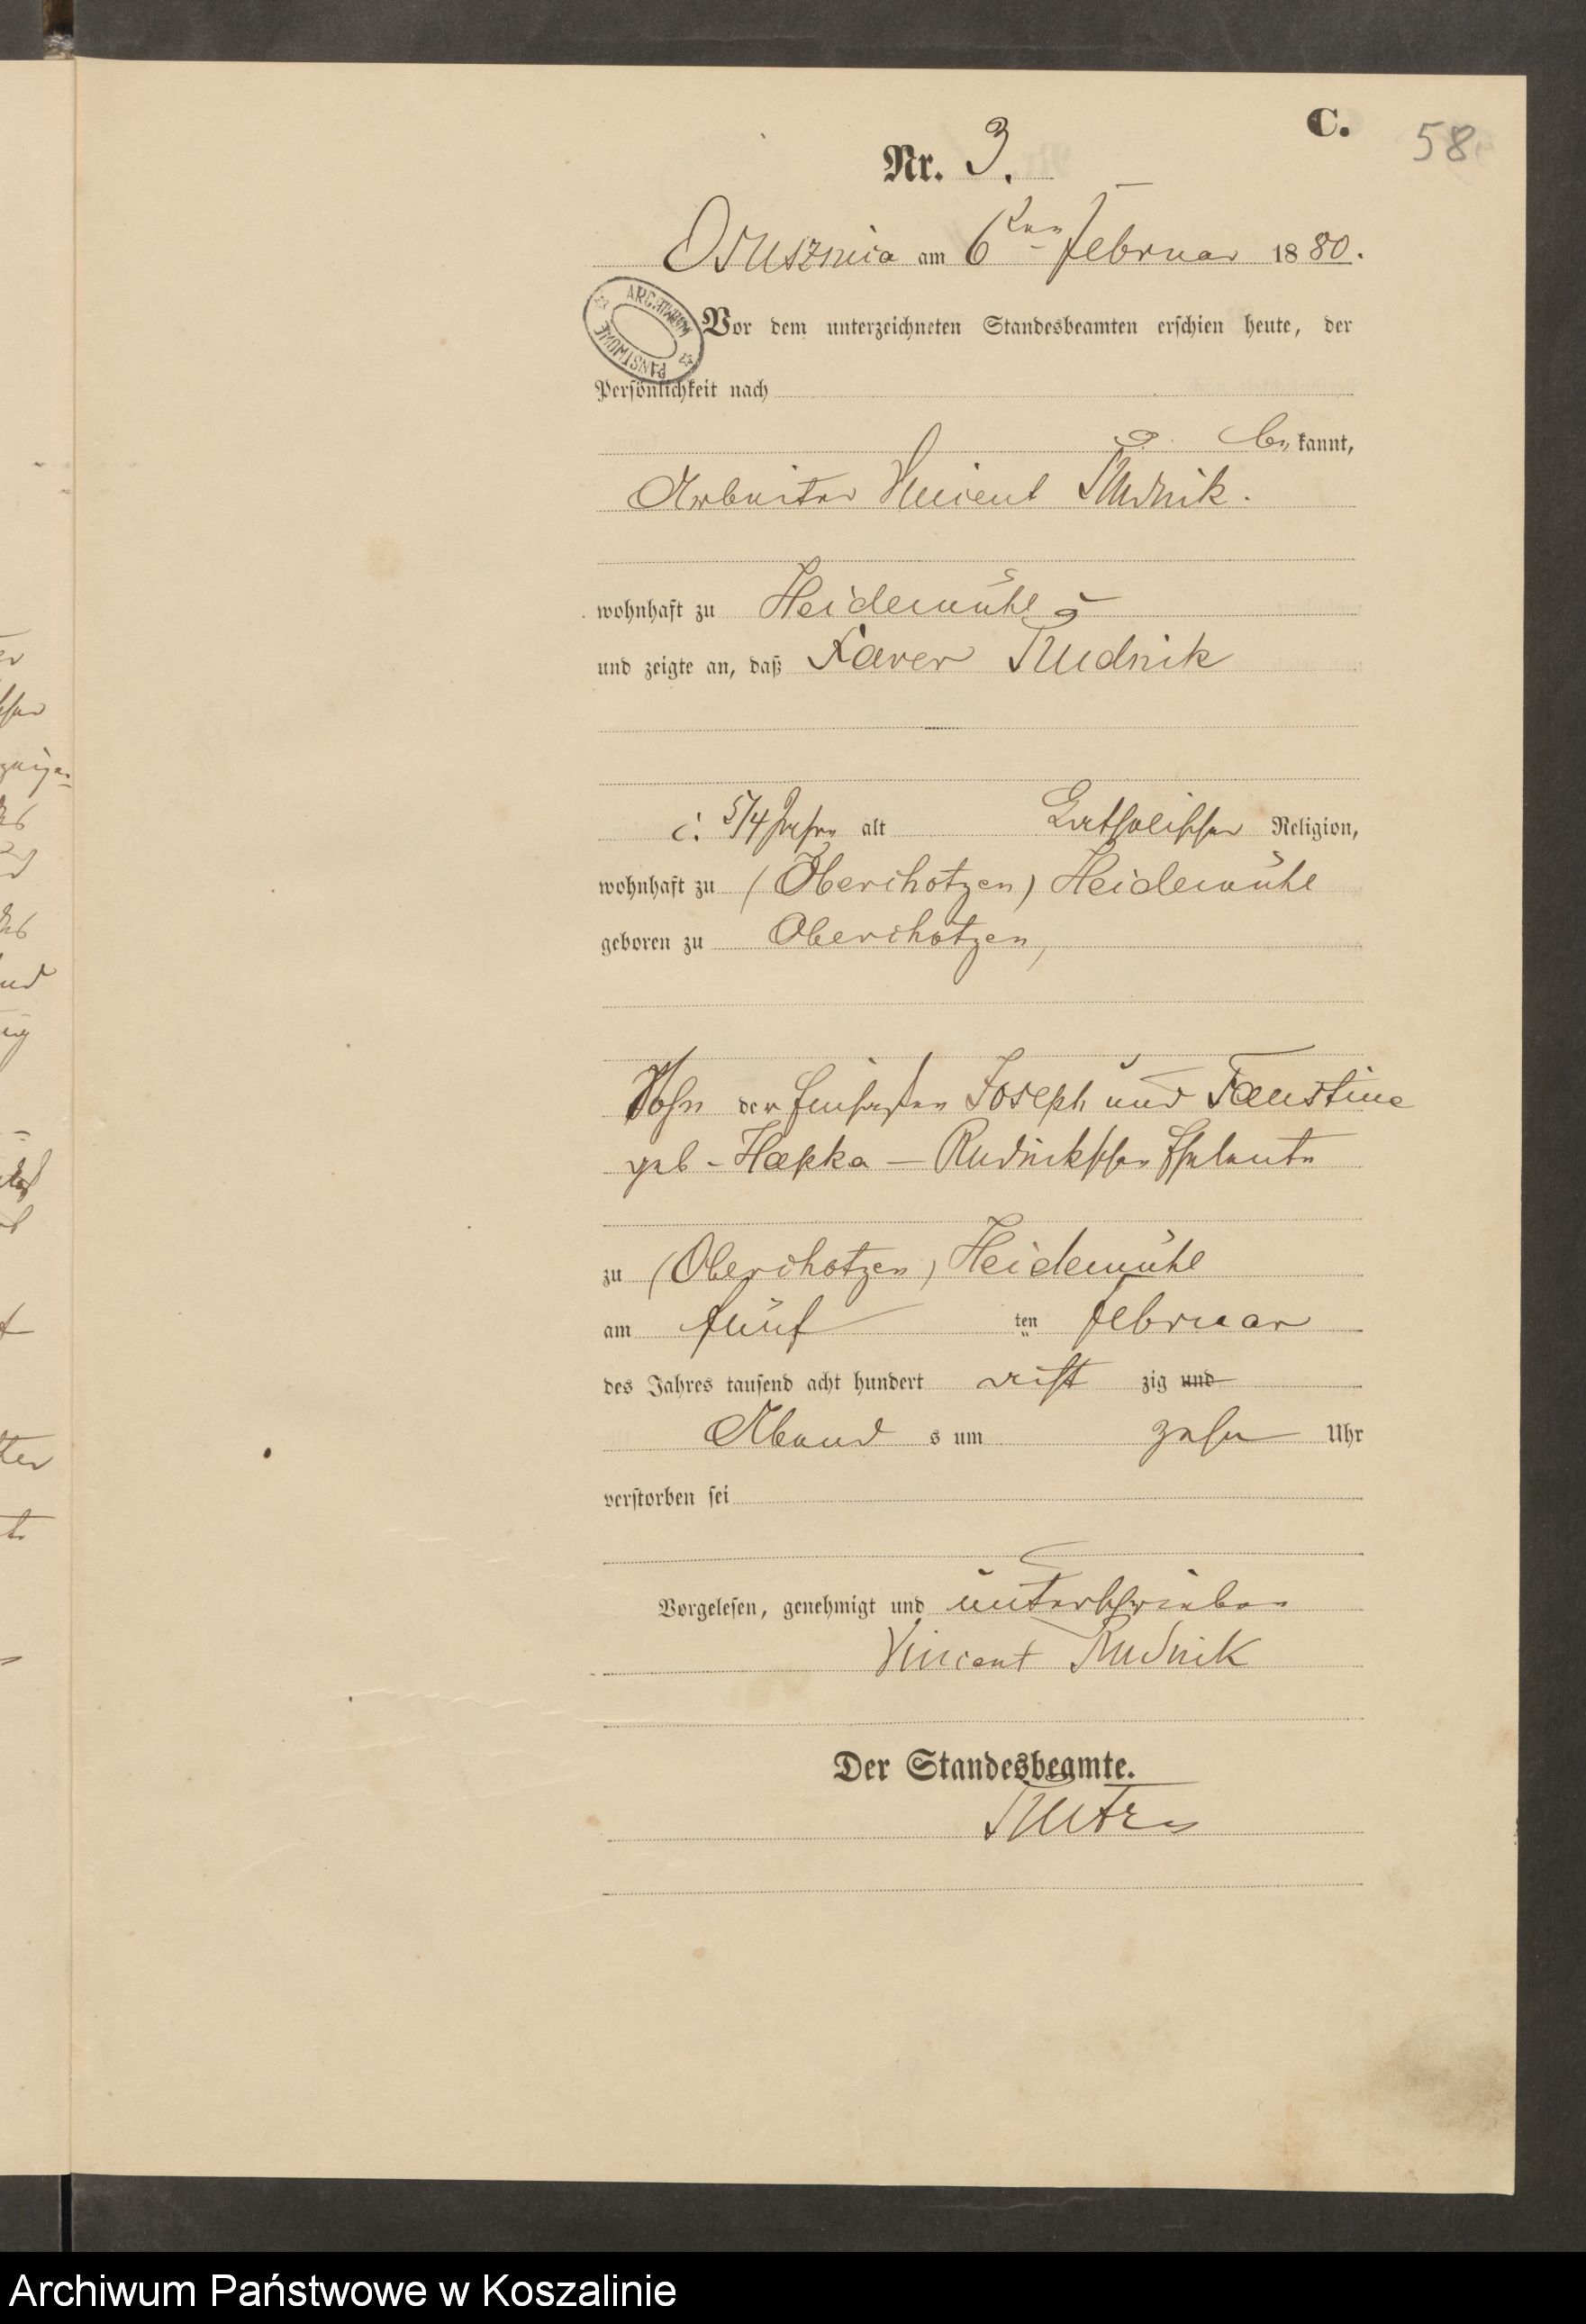 C.
58
Nr. 3.
Ossusznica am 6ten Februar 1880.
ARCHIWUM PAŃSTWOWE
Vor dem unterzeichneten Standesbeamten erschien heute, der
Persönlichkeit nach
bekannt,
Arbeiter Vincent Rudnik.
wohnhaft zu Heidemühle
und zeigte an, daß Xaver Rudnik
5/4 Jahre alt Katholischer Religion,
wohnhaft zu (Oberchotzen) Heidemühl
geboren zu Oberchotzen,
Sohn der Joseph und Faustine
geb - Hapka - Rudnikschen Eheleute
zu (Oberchotzen) Heidemühl
am fünf ten Februar
des Jahres tausend acht hundert acht zig und
Abend s um zehn Uhr
verstorben sei
Vorgelesen, genehmigt und unterschrieben
Vincent Rudnik
Der Standesbeamte.
Archiwum Państwowe w Koszalinie